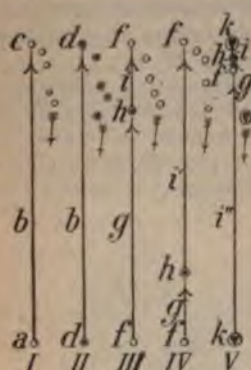 c d f f k
h i
i f g
h
b b g i' i"
h
g
a d f f k
I II III IV V